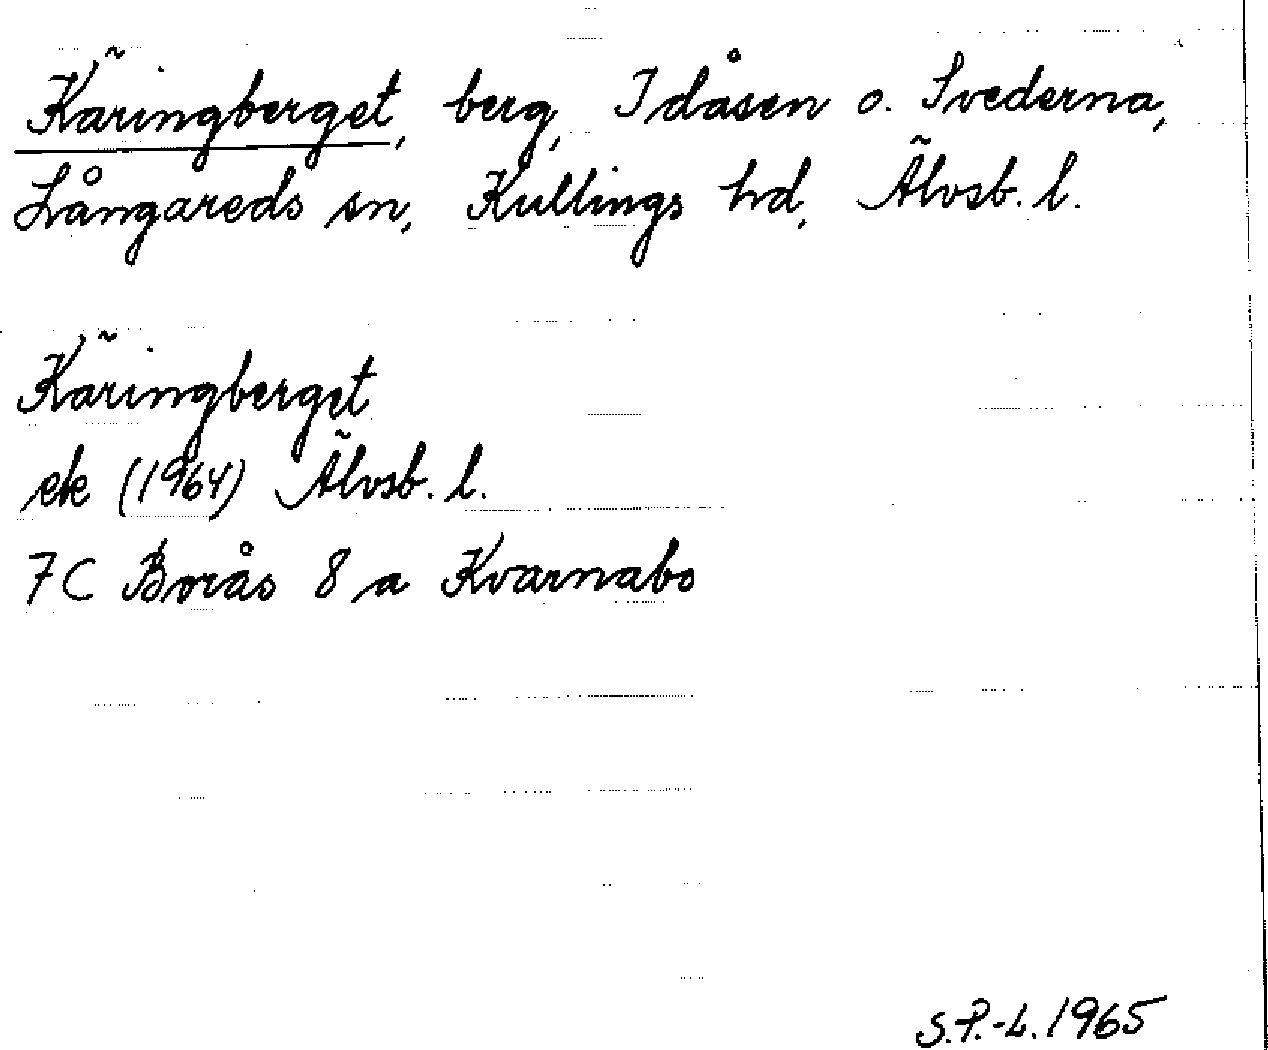 Käringberget, berg, Idåsen o. Svederna,
Långareds sn, Kullings hd, Älvsb. l.
Käringberget
ek (1964) Älvsb. l.
7C Borås 8 a Kvarnabo
S.P.-L. 1965